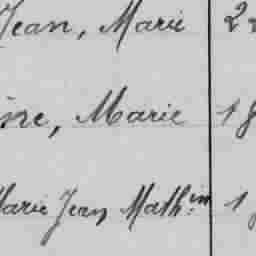 Jean, Marie 2
ine, Marie 18
Marie Jean Math.in 1